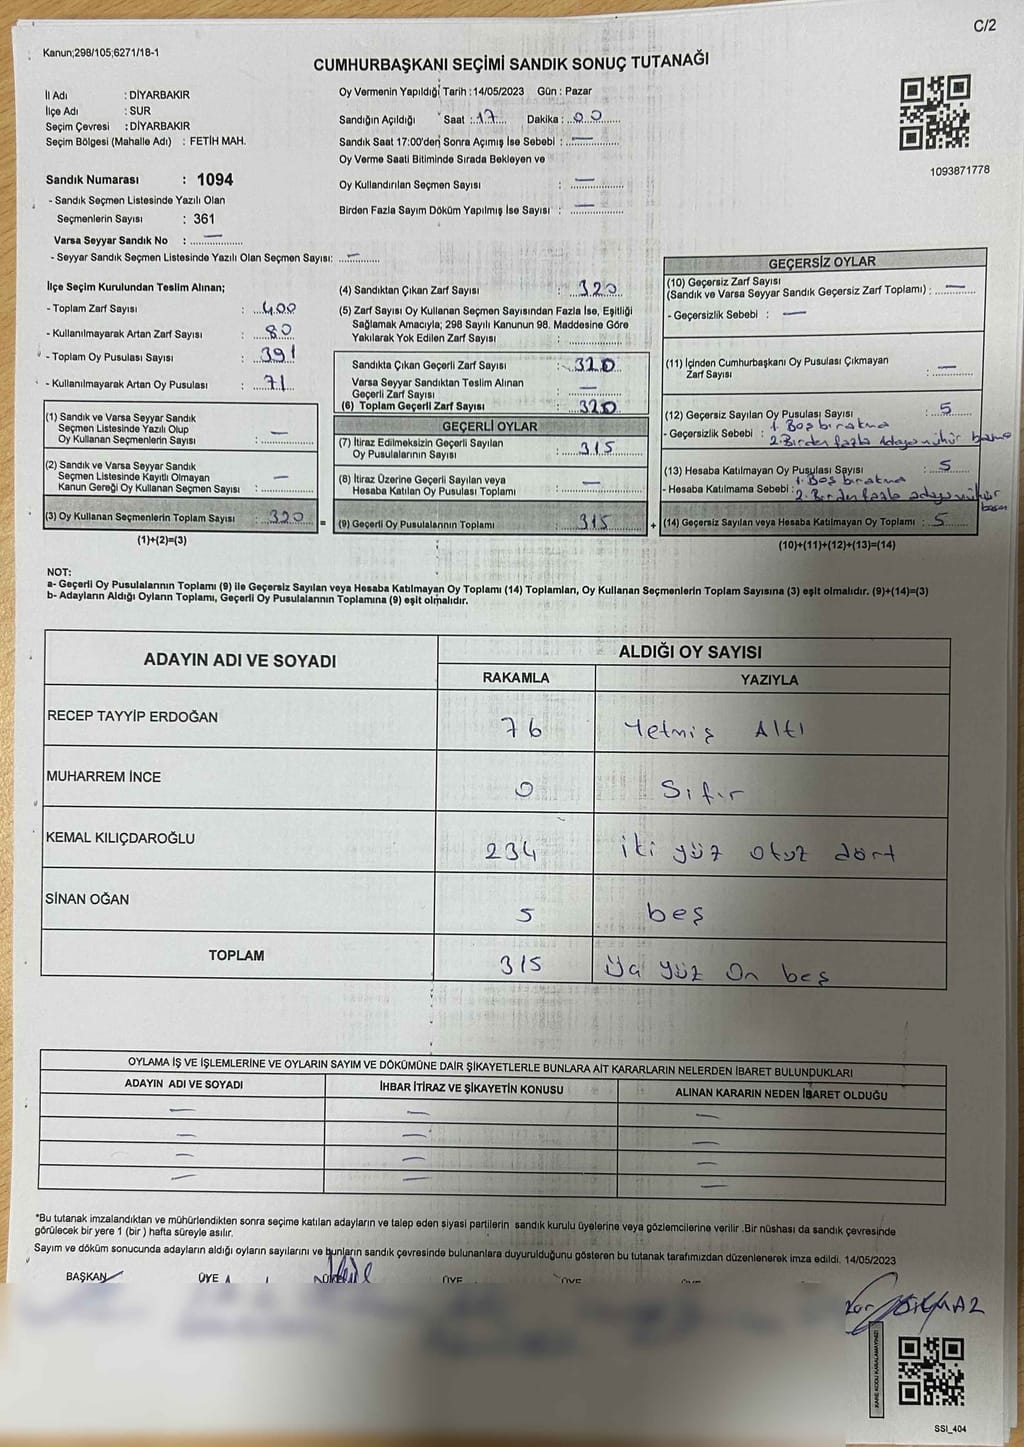 C/2
Kanun;298/105;6271/18-1
CUMHURBAŞKANI SEÇİMİ SANDIK SONUÇ TUTANAĞI
İl Adı : DİYARBAKIR
İlçe Adı : SUR
Seçim Çevresi : DİYARBAKIR
Seçim Bölgesi (Mahalle Adı) : FETİH MAH.
Sandık Numarası : 1094
- Sandık Seçmen Listesinde Yazılı Olan
Seçmenlerin Sayısı : 361
Varsa Seyyar Sandık No : —
- Seyyar Sandık Seçmen Listesinde Yazılı Olan Seçmen Sayısı: —
Oy Vermenin Yapıldığı Tarih : 14/05/2023 Gün : Pazar
Sandığın Açıldığı Saat : 17 Dakika : 00
Sandık Saat 17:00'den Sonra Açımış İse Sebebi : —
Oy Verme Saati Bitiminde Sırada Bekleyen ve
Oy Kullandırılan Seçmen Sayısı : —
Birden Fazla Sayım Döküm Yapılmış İse Sayısı : —
1093871778
İlçe Seçim Kurulundan Teslim Alınan;
- Toplam Zarf Sayısı : 400
- Kullanılmayarak Artan Zarf Sayısı : 80
- Toplam Oy Pusulası Sayısı : 391
- Kullanılmayarak Artan Oy Pusulası : 71
(1) Sandık ve Varsa Seyyar Sandık
Seçmen Listesinde Yazılı Olup
Oy Kullanan Seçmenlerin Sayısı : —
(2) Sandık ve Varsa Seyyar Sandık
Seçmen Listesinde Kayıtlı Olmayan
Kanun Gereği Oy Kullanan Seçmen Sayısı : —
(3) Oy Kullanan Seçmenlerin Toplam Sayısı : 320 =
(1)+(2)=(3)
(4) Sandıktan Çıkan Zarf Sayısı : 320
(5) Zarf Sayısı Oy Kullanan Seçmen Sayısından Fazla İse, Eşitliği
Sağlamak Amacıyla; 298 Sayılı Kanunun 98. Maddesine Göre
Yakılarak Yok Edilen Zarf Sayısı :
Sandıkta Çıkan Geçerli Zarf Sayısı : 320
Varsa Seyyar Sandıktan Teslim Alınan
Geçerli Zarf Sayısı : —
(6) Toplam Geçerli Zarf Sayısı : 320
GEÇERLİ OYLAR
(7) İtiraz Edilmeksizin Geçerli Sayılan
Oy Pusulalarının Sayısı : 315
(8) İtiraz Üzerine Geçerli Sayılan veya
Hesaba Katılan Oy Pusulası Toplamı : —
(9) Geçerli Oy Pusulalarının Toplamı : 315 +
GEÇERSİZ OYLAR
(10) Geçersiz Zarf Sayısı
(Sandık ve Varsa Seyyar Sandık Geçersiz Zarf Toplamı) : —
- Geçersizlik Sebebi : —
(11) İçinden Cumhurbaşkanı Oy Pusulası Çıkmayan
Zarf Sayısı : —
(12) Geçersiz Sayılan Oy Pusulası Sayısı : 5
- Geçersizlik Sebebi : 1. Boş bırakma
2. Birden fazla adaya mühür basma
(13) Hesaba Katılmayan Oy Pusulası Sayısı : 5
- Hesaba Katılmama Sebebi : 1. Boş bırakma
2. Birden fazla adaya mühür
basma
(14) Geçersiz Sayılan veya Hesaba Katılmayan Oy Toplamı : 5
(10)+(11)+(12)+(13)=(14)
NOT:
a- Geçerli Oy Pusulalarının Toplamı (9) ile Geçersiz Sayılan veya Hesaba Katılmayan Oy Toplamı (14) Toplamları, Oy Kullanan Seçmenlerin Toplam Sayısına (3) eşit olmalıdır. (9)+(14)=(3)
b- Adayların Aldığı Oyların Toplamı, Geçerli Oy Pusulalarının Toplamına (9) eşit olmalıdır.
ADAYIN ADI VE SOYADI ALDIĞI OY SAYISI
RAKAMLA YAZIYLA
RECEP TAYYİP ERDOĞAN 76 Yetmiş Altı
MUHARREM İNCE 0 Sıfır
KEMAL KILIÇDAROĞLU 234 iki yüz otuz dört
SİNAN OĞAN 5 beş
TOPLAM 315 Üç yüz On beş
OYLAMA İŞ VE İŞLEMLERİNE VE OYLARIN SAYIM VE DÖKÜMÜNE DAİR ŞİKAYETLERLE BUNLARA AİT KARARLARIN NELERDEN İBARET BULUNDUKLARI
ADAYIN ADI VE SOYADI İHBAR İTİRAZ VE ŞİKAYETİN KONUSU ALINAN KARARIN NEDEN İBARET OLDUĞU
— — —
— — —
— — —
— — —
*Bu tutanak imzalandıktan ve mühürlendikten sonra seçime katılan adayların ve talep eden siyasi partilerin sandık kurulu üyelerine veya gözlemcilerine verilir .Bir nüshası da sandık çevresinde
görülecek bir yere 1 (bir ) hafta süreyle asılır.
Sayım ve döküm sonucunda adayların aldığı oyların sayılarını ve bunların sandık çevresinde bulunanlara duyurulduğunu gösteren bu tutanak tarafımızdan düzenlenerek imza edildi. 14/05/2023
BAŞKAN ÜYE ÜYE ÜYE
KARE KODU KARALAMAYINIZ!
SSI_404